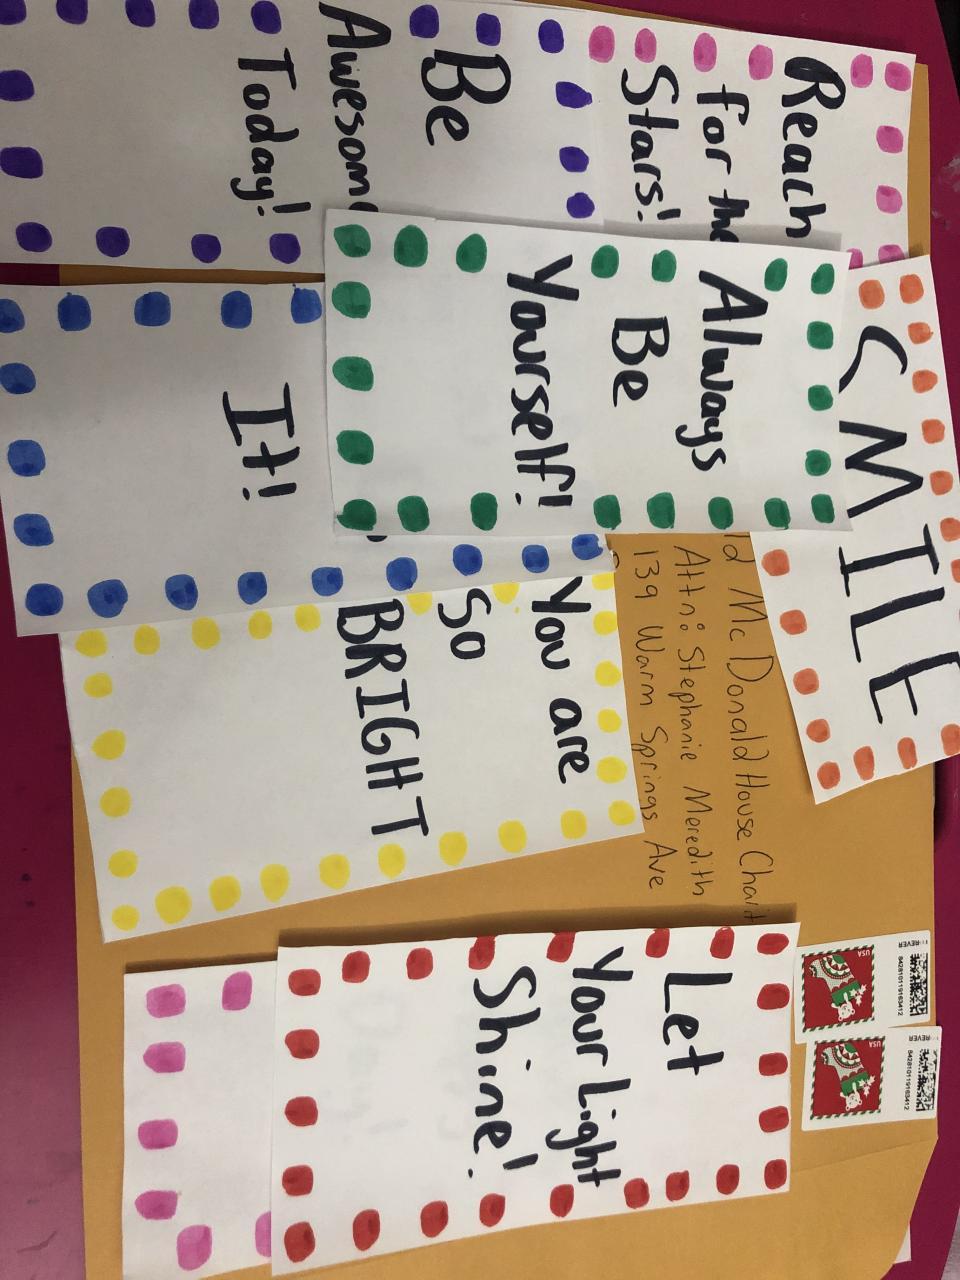 Reach
for the
Stars!
Be
Awesome
Today!
Always
Be
Yourself!
SMILE
It!
You are
So
BRIGHT
ld McDonald House Charit
Attn: Stephanie Meredith
139 Warm Springs Ave
Let
Your Light
Shine!
REVER
USA
842810119163412
REVER
USA
842810119163412